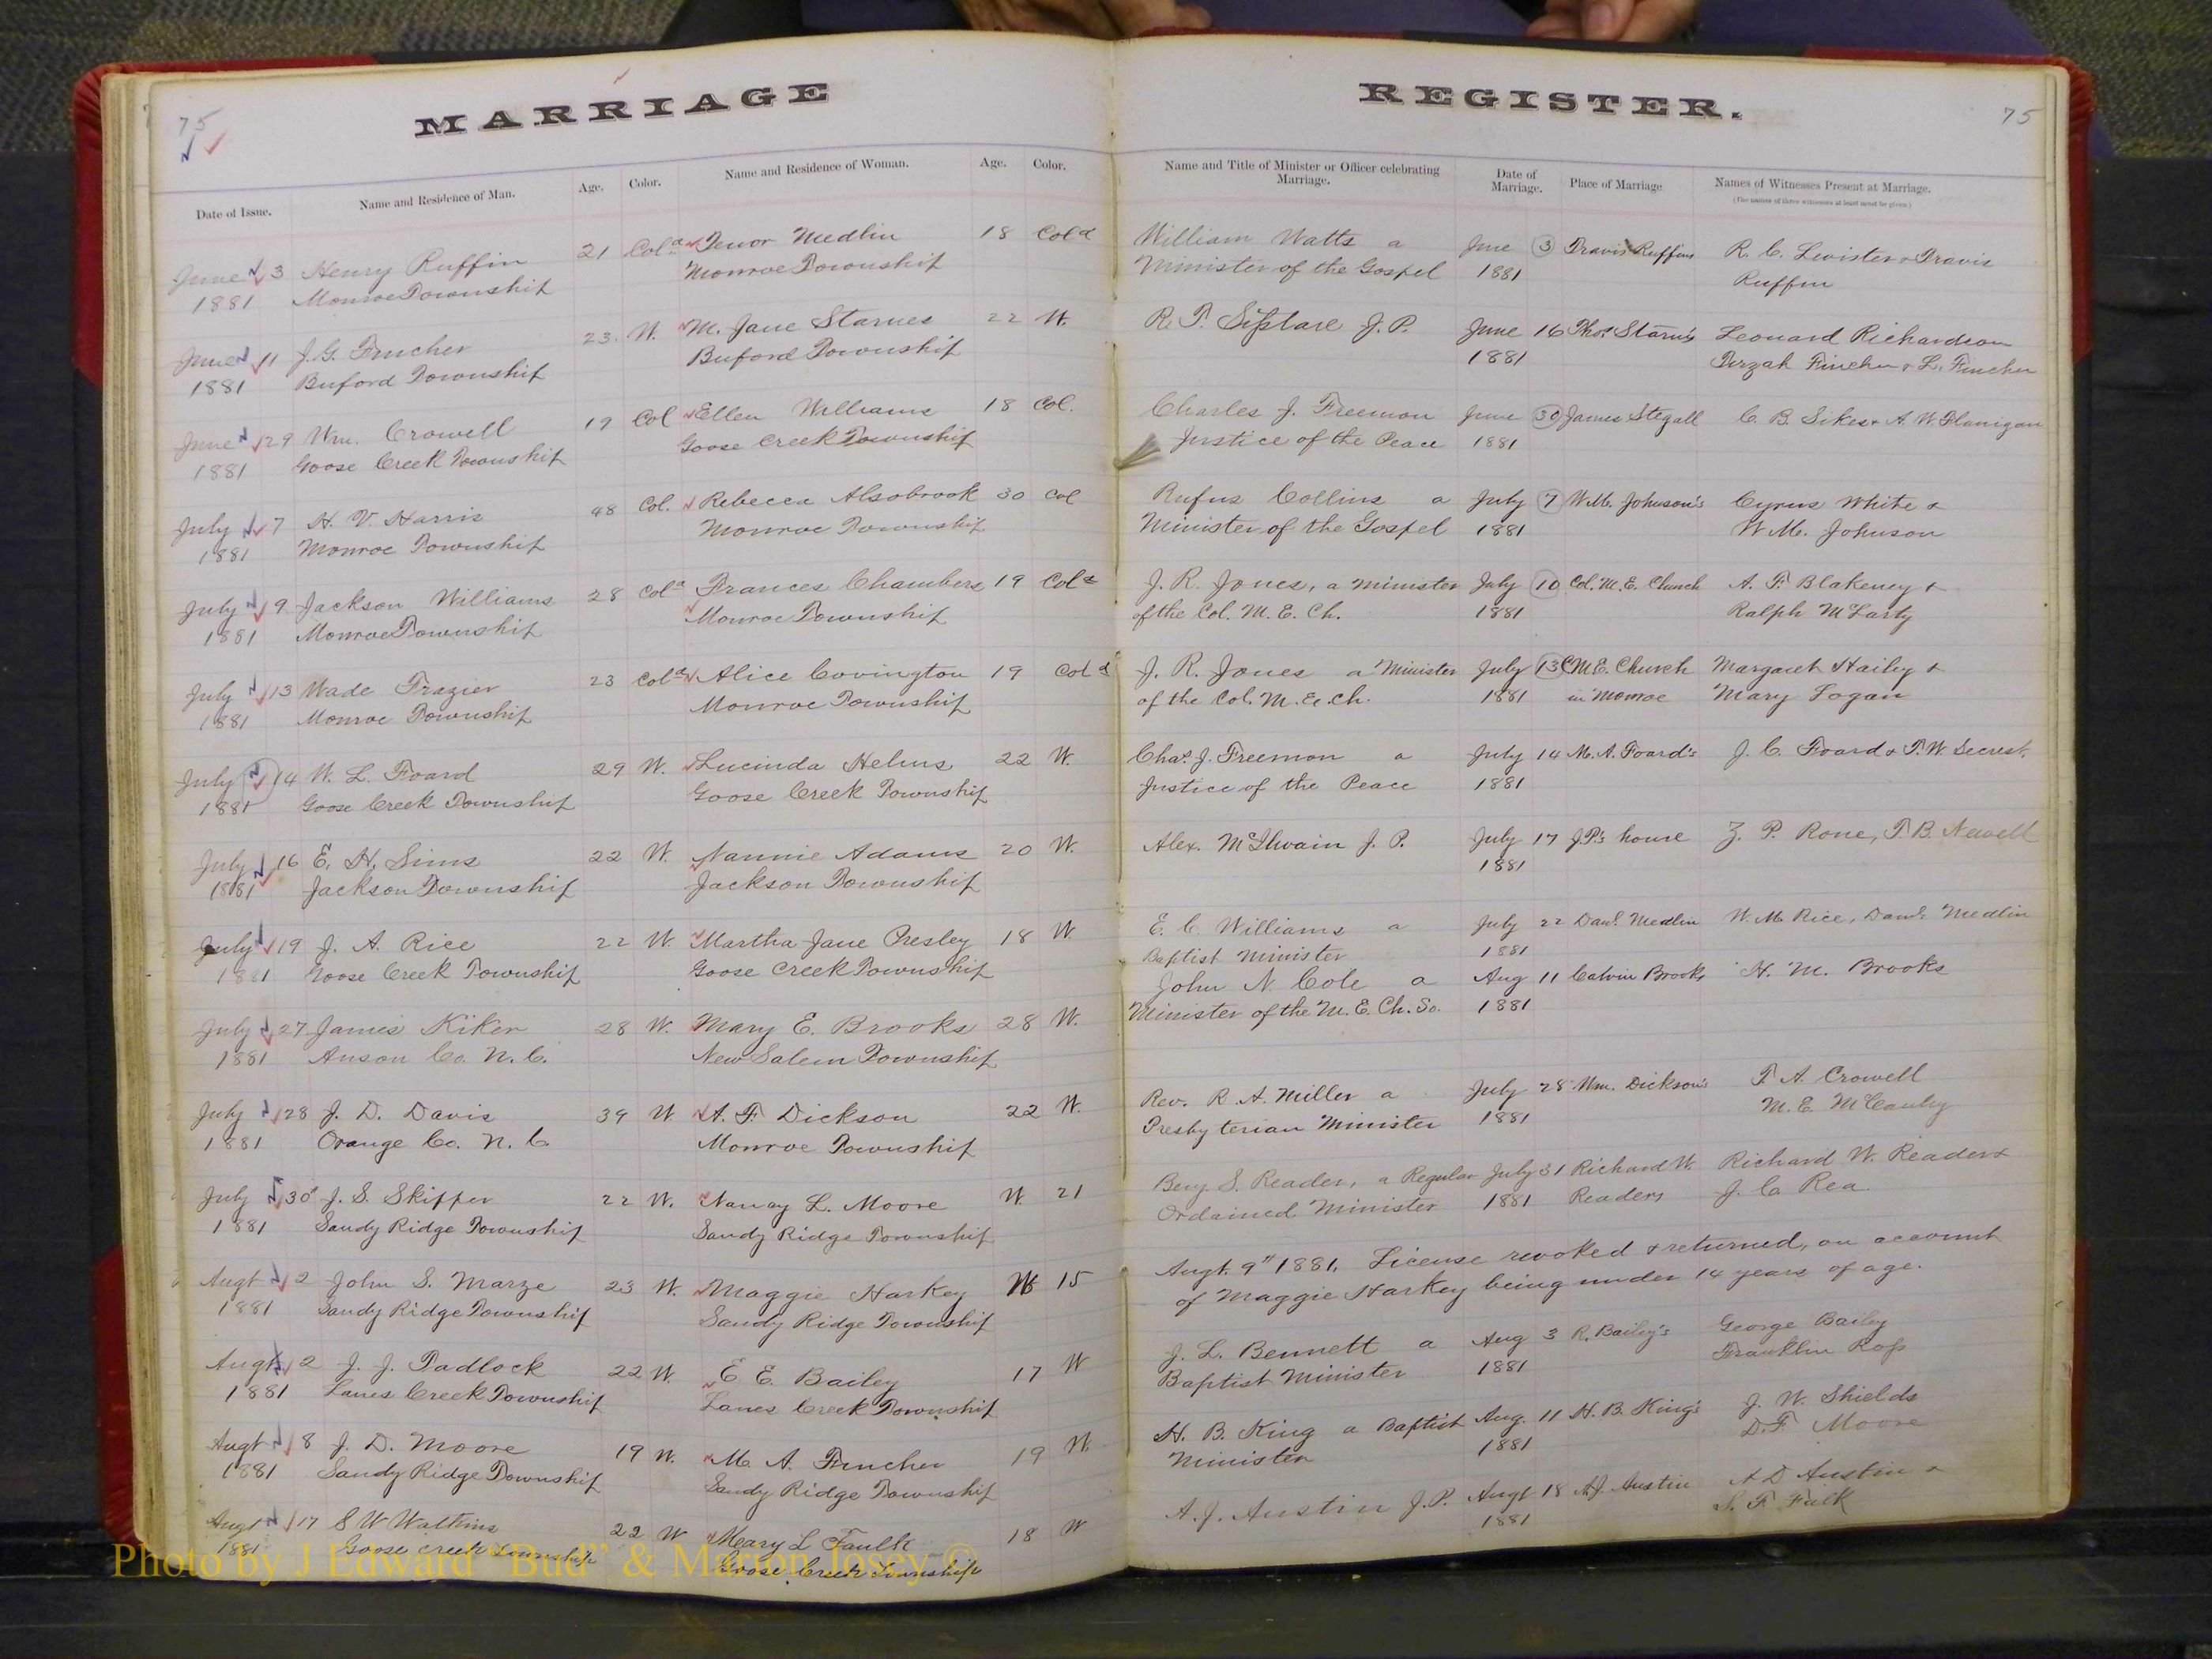 MARRIAGE
REGISTER.
75
75
Date of Issue. Name and Residence of Man. Age. Color. Name and Residence of Woman. Age. Color.
Name and Title of Minister or Officer celebrating Marriage. Date of Marriage. Place of Marriage Names of Witnesses Present at Marriage.
(The names of three witnesses at least must be given)
June 3 Henry Ruffin 21 Cold Medlin 18 Cold
1881 Monroe Township Monroe Township
June 11 J. G. Fincher 23. W. M. Jane Starnes 22 W.
1881 Buford Township Buford Township
June 29 Wm. Crowell 19 Col Ellen Williams 18 Col.
1881 Goose Creek Township Goose Creek Township
July 7 H. V. Harris 48 Col. Rebecca Alsobrook 30 Col
1881 Monroe Township Monroe Township
July 9 Jackson Williams 28 Cold Frances Chambers 19 Cold
1881 Monroe Township Monroe Township
July 13 Wade Frazier 23 Cold Alice Covington 19 Cold
1881 Monroe Township Monroe Township
July 14 W. L. Foard 29 W. Lucinda Helms 22 W.
1881 Goose Creek Township Goose Creek Township
July 16 E. H. Sims 22 W. Nannie Adams 20 W.
1881 Jackson Township Jackson Township
July 19 J. A. Rice 22 W. Martha Jane Presley 18 W
1881 Goose Creek Township Goose Creek Township
July 27 James Kiker 28 W. Mary E. Brooks 28 W.
1881 Anson Co. N. C. New Salem Township
July 28 J. D. Davis 39 W A. F. Dickson 22 W.
1881 Orange Co. N. C Monroe Township
July 30 J. S. Skipper 22 W. Nancy L. Moore W. 21
1881 Sandy Ridge Township Sandy Ridge Township
Augt 2 John S. Marze 23 W. Maggie Harkey W 15
1881 Sandy Ridge Township Sandy Ridge Township
Augt 2 J. J. Padlock 22 W. E. E. Bailey 17 W
1881 Lanes Creek Township Lanes Creek Township
Augt 8 J. D. Moore 19 W. M. A. Fincher 19 W.
1881 Sandy Ridge Township Sandy Ridge Township
Augt 17 S W Watkins 22 W Meary L Faulk 18 W
1881 Goose Creek Township Goose Creek Township
William Watts a June 3 Travis Ruffins R. C. Lewister & Travis
Minister of the Gospel 1881 Ruffin
R. T. J. P. June 16 Thos. Starns Leonard Richardson
1881 Tirzah Fincher & L. Fincher
Charles J. Freemon June 30 James Stegall C. B. Sikes & A. W. Flanigan
Justice of the Peace 1881
Rufus Collins a July 7 W. M. Johnson's Cyrus White &
Minister of the Gospel 1881 W. M. Johnson
J. R. Jones, a minister July 10 Col. M. E. Church A. F. Blakeney &
of the Col. M. E. Ch. 1881 Ralph McLarty
J. R. Jones a Minister July 13 C M E. Church Margaret Hailey &
of the Col. M. E. Ch. 1881 in Monroe Mary Logan
Chas. J. Freemon a July 14 M. A. Foard's J. C. Foard & T. W. Secrest.
Justice of the Peace 1881
Alex. McIlwain J. P. July 17 J.P.'s house Z. P. Rone, T. B. Newell
1881
E. C. Williams a July 22 Danl. Medlin W. M. Rice, Danl. Medlin
Baptist Minister 1881
John N. Cole a Aug 11 Calvin Brooks H. M. Brooks
Minister of the M. E. Ch. So. 1881
Rev. R. A. Miller a July 28 Wm. Dickson's T. A. Crowell
Presbyterian Minister 1881 M. E. McCauley
Benj. S. Reader, a Regular July 31 Richard W. Richard W. Reader &
Ordained Minister 1881 Readers J. C. Rea
Augt. 9" 1881. License revoked & returned, on account
of Maggie Harkey being under 14 years of age.
J. L. Bennett a Aug 3 R. Bailey's George Bailey
Baptist Minister 1881 Franklin Ross
H. B. King a Baptist Aug. 11 H. B. King's J. W. Shields
Minister 1881 D. F. Moore
A. J. Austin J. P. Augt 18 A. J. Austin A D Austin &
1881 S. F. Falk
Photo by J Edward "Bud" & Marion Josey ©